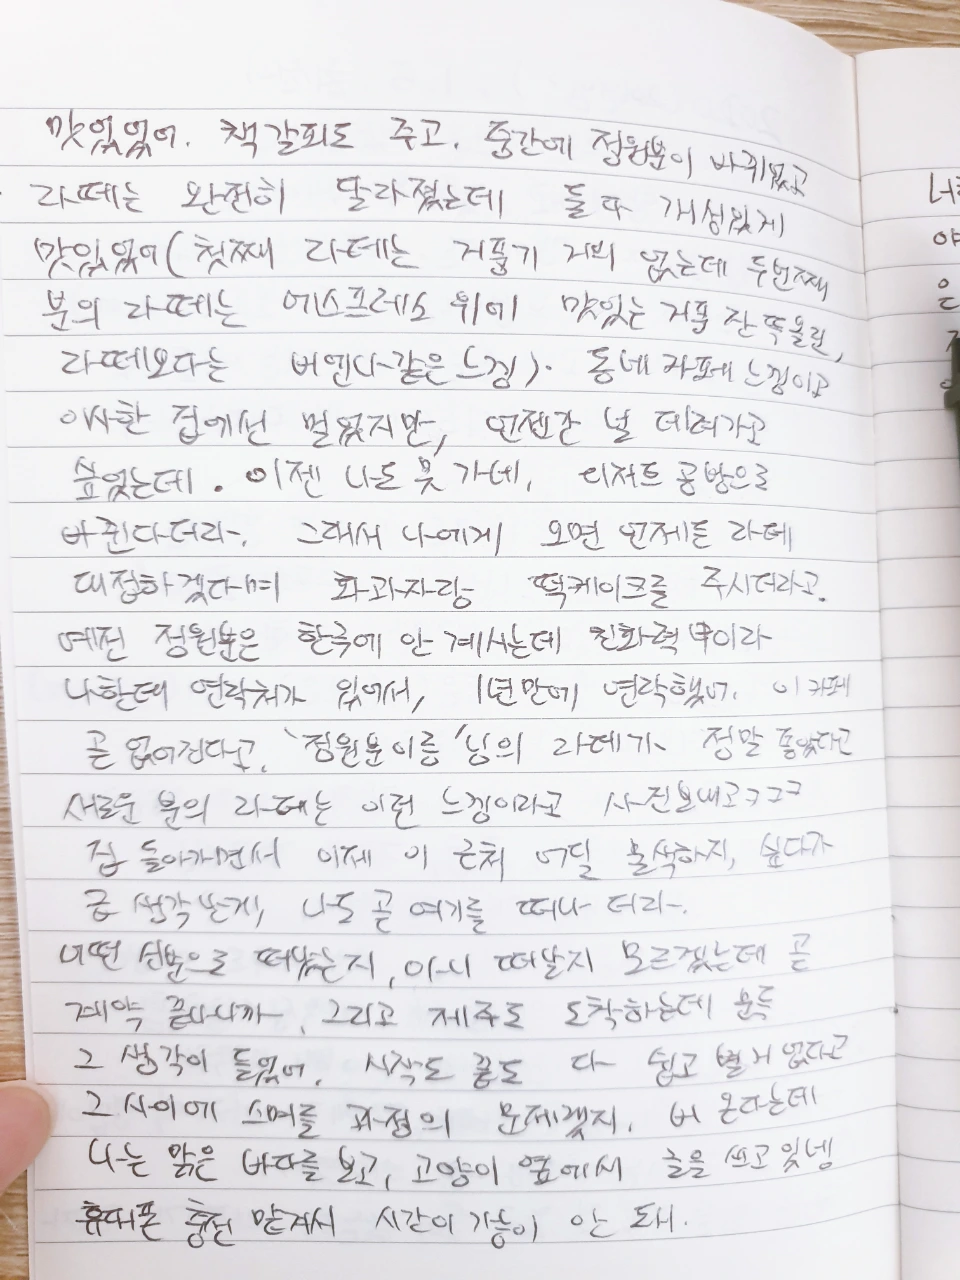 맛있었어. 책갈피도 주고. 중간에 정원분이 바뀌었고
라떼는 완전히 달라졌는데 둘다 개성있게
맛있었어(첫째 라떼는 거품기 거의 없는데 두번째
분의 라떼는 에스프레소 위에 맛있는 거품 잔뜩올린,
라떼보다는 비엔나같은 느낌). 동네 카페 느낌이고
이사한 집에선 멀었지만, 언젠간 널 데려가고
싶었는데. 이젠 나도 못 가네, 디저트 공방으로
바뀐다더라. 그래서 나에게 오면 언제든 라떼
대접하겠다며 화과자랑 떡케이크를 주시더라고.
예전 정원분은 한국에 안 계시는데 친화력 甲이라
나한테 연락처가 있어서, 1년만에 연락했어. 이 카페
곧 없어진다고, '정원분이름'님의 라떼가 정말 좋았다고
새로운 분의 라떼는 이런 느낌이라고 사진보내고ㅋㅋㅋ
집 돌아가면서 이제 이 근처 어딜 물색하지, 싶다가
금 생각난게, 나도 곧 여기를 떠나더라.
어떤 신분으로 떠났는지, 아니 떠날지 모르겠는데 곧
계약 끝나니까, 그리고 제주도 도착하는데 문득
그 생각이 들었어. 시작도 끝도 다 쉽고 별거 없다고
그 사이에 스며들 과정의 문제겠지. 비 온다는데
나는 맑은 바다를 보고, 고양이 옆에서 글을 쓰고 있넹
휴대폰 충전 맡겨서 시간이 가늠이 안 돼.
너
야
은